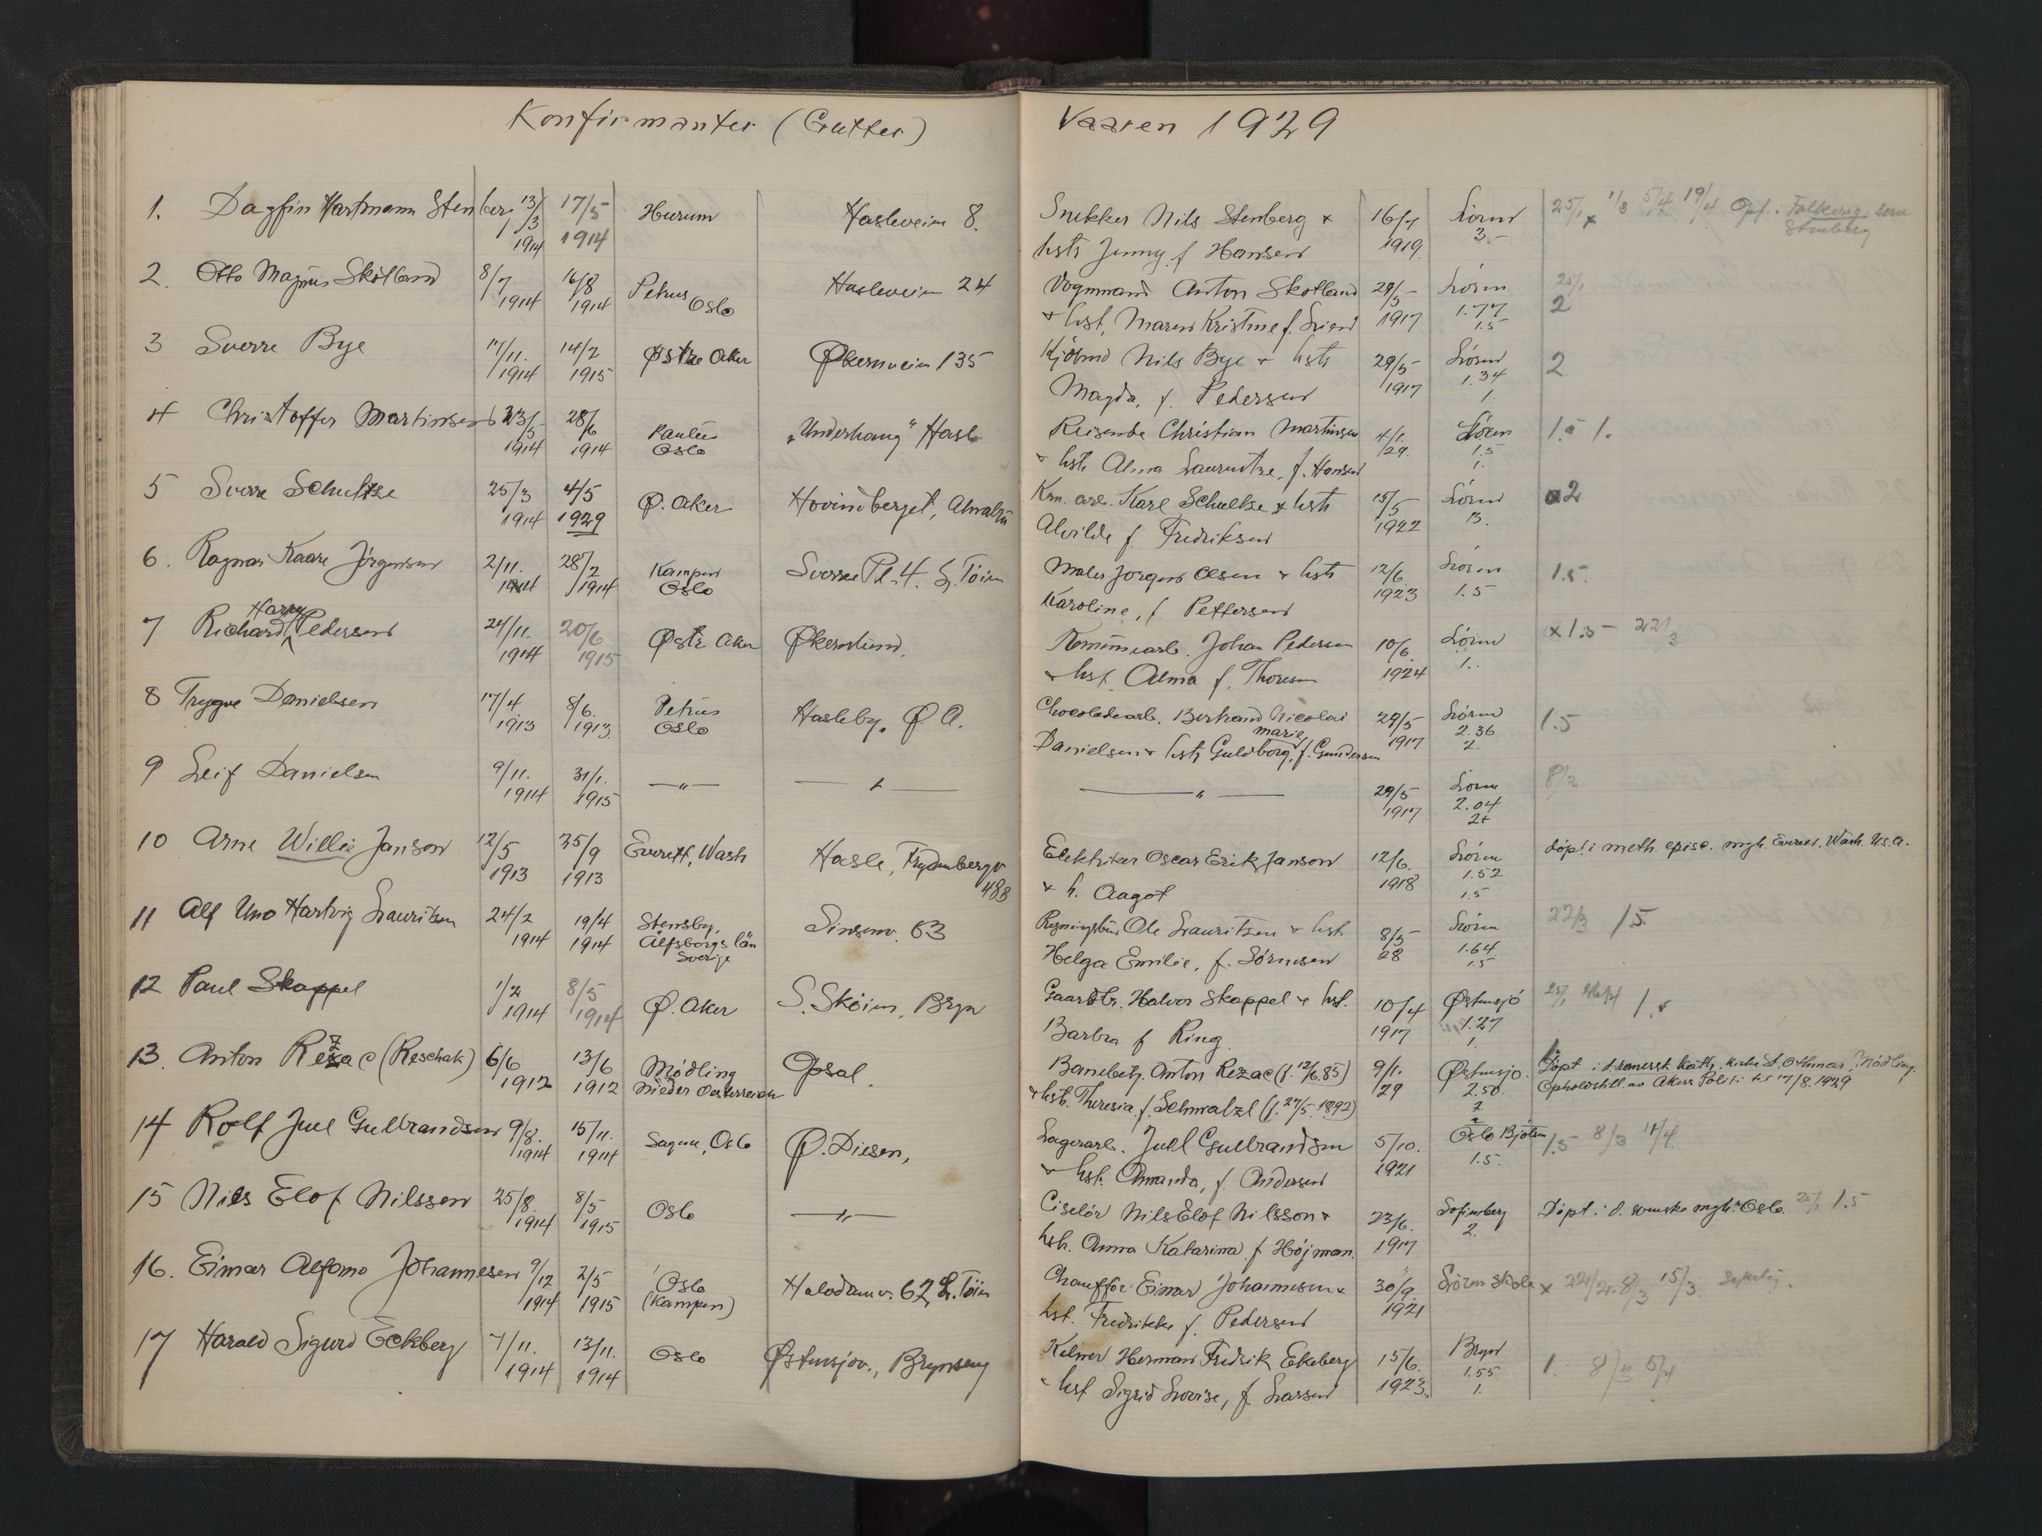 Konfirmanter (Gutter) Vaaren 1929
1. Dagfin Hartmann Stenberg 13/3 1914 17/5 1914 Hurum Hasleveien 8. Snekker Nils Stenberg + 16/7 1919 Lören 3.- 25/1 x 1/3 5/4 19/4 Opf. i Folkereg. som Stenberg
hstr Jenny f Hansen
2. Otto Magnus Skotland 8/7 1914 16/8 1914 Petrus Oslo Hasleveien 24 Vognmand Anton Skotland 29/5 1917 Lören 1.77 1.5 25/1 2
+ hst. Maren Kristine f.
3 Sverre Bye 17/11. 1914 14/2 1915 Østre Aker Økernveien 135 Kjöbmd Nils Bye + hstr 29/5 1917 Lören 1.34 1 2
Magda, f. Pedersen
4 Christoffer Martinsen 23/5 1914 28/6 1914 Paulus Oslo „Underhaug" Hasle Reisende Christian Martinsen 4/1. 29. Lören 1.5 1.
+ hstr Alma Laurentze, f. Hansen
5 Sverre Schultze 25/3 1914 4/5 1929 Ø. Aker Hovindberget, Karl Schultze + hstr 15/5 1922 Lören 2
Alvilde f. Fredriksen
6. Ragnar Kaare Jörgensen 2/11. 1914 28/2 1914 Kampen Oslo Sverres Pl. 4. L. Töien Maler Jörgen Olsen + hstr 12/6. 1923 Lören 1.5 1.5.
Karoline, f. Pettersen
7 Richard Harry Pedersen 24/11. 1914 20/6 1915 Østre Aker Økernlund. Kommunearb. Johan Pedersen 10/6. 1924 Lören 1. x 1.5 -
+ hst. Alma f. Thoresen
8 Trygve Danielsen 17/4 1913 8/6. 1913. Petrus Oslo Hasleby, Ø. A. Chocoladearb. Bernhard Nicolai 29/5 1917 Lören 2.36 2. 1.5
Danielsen + hstr Guldborg Marie, f. Gundersen
9 Leif Danielsen 9/11. 1914 31/1. 1915 — " — — " — — " — 29/5 1917 Lören 2.04 2+ 8/3
10 Arne Willie Janson 12/5 1913 25/9 1913 Everett, Wash Hasle, Frydenbergv 48B Elektriker Oscar Erik Janson 12/6. 1918 Lören 1.52 1.5 Döpt i meth. episc. mgh. Everett. Wash. U.S.A.
+ h. Aagot
11 Alf Uno Hartvig Lauritsen 24/2 1914 19/4 1914 Stensby, Älfsborgs län Sverige Sinsenv. 63 Ole Lauritsen + hst. 8/5 28 Lören 1.64 1.5 22/3 1.5.
Helga Emilie, f. Sörensen
12 Paul Skappel 1/2 1914 8/5 1914 Ø. Aker S. Sköien, Bryn Gaardbr. Halvor Skappel + hst. 10/4 1917 Østensjö 1.27 1. 25/1
Barbra f Ring.
13. Anton Rezac (Reschak) 6/6 1912 13/6 1912 Mödling Nieder Oesterreich Opsal. Banebetj. Anton Rezac (f. 12/6.85) 9/1. 29 Østensjö. 2.50. 2 Döpt i d. romersk kath. kirke St. Othmar, Mödling.
+ hstr. Theresia f. Schmalzl (f. 27/5.1892) Opholdstill. av Akers Politi til 17/8.1929
14 Rolf Juel Gulbrandsen 9/8. 1914 15/11. 1914 Sagene, Oslo Ø. Diesen, Lagerarb. Juel Gulbrandsen 5/10. 1921 Oslo Bjölsen 1.5. 1.5 8/3 11/4.
+ hst. Amanda, f. Andersen
15 Nils Elof Nilsson 25/8. 1914 8/5 1915 Oslo — " — Ciselör Nils Elof Nilsson + 23/6. 1917 Sofienberg 2. Döpt i d. svenske mgh. Oslo. 25/1 1.5
hstr. Anna Katarina f Höjman.
16. Eimar Alfonso Johannesen 9/12 1914 2/5 1915 Oslo (Kampen) 62 L. Töien Chaufför Eimar Johannesen + 30/9. 1921 Lören skole x 8/3 15/3.
hst. Fredrikke f. Pedersen
17 Harald Sigurd Eckberg 7/11. 1914 13/11. 1914 Oslo Østensjöv., Brynseng Kelner Herman Fredrik Ekeberg 15/6. 1923. Bryn 1.55 1. 1. 8/2 5/4
+ hst Sigrid Lovise, f. Larsen